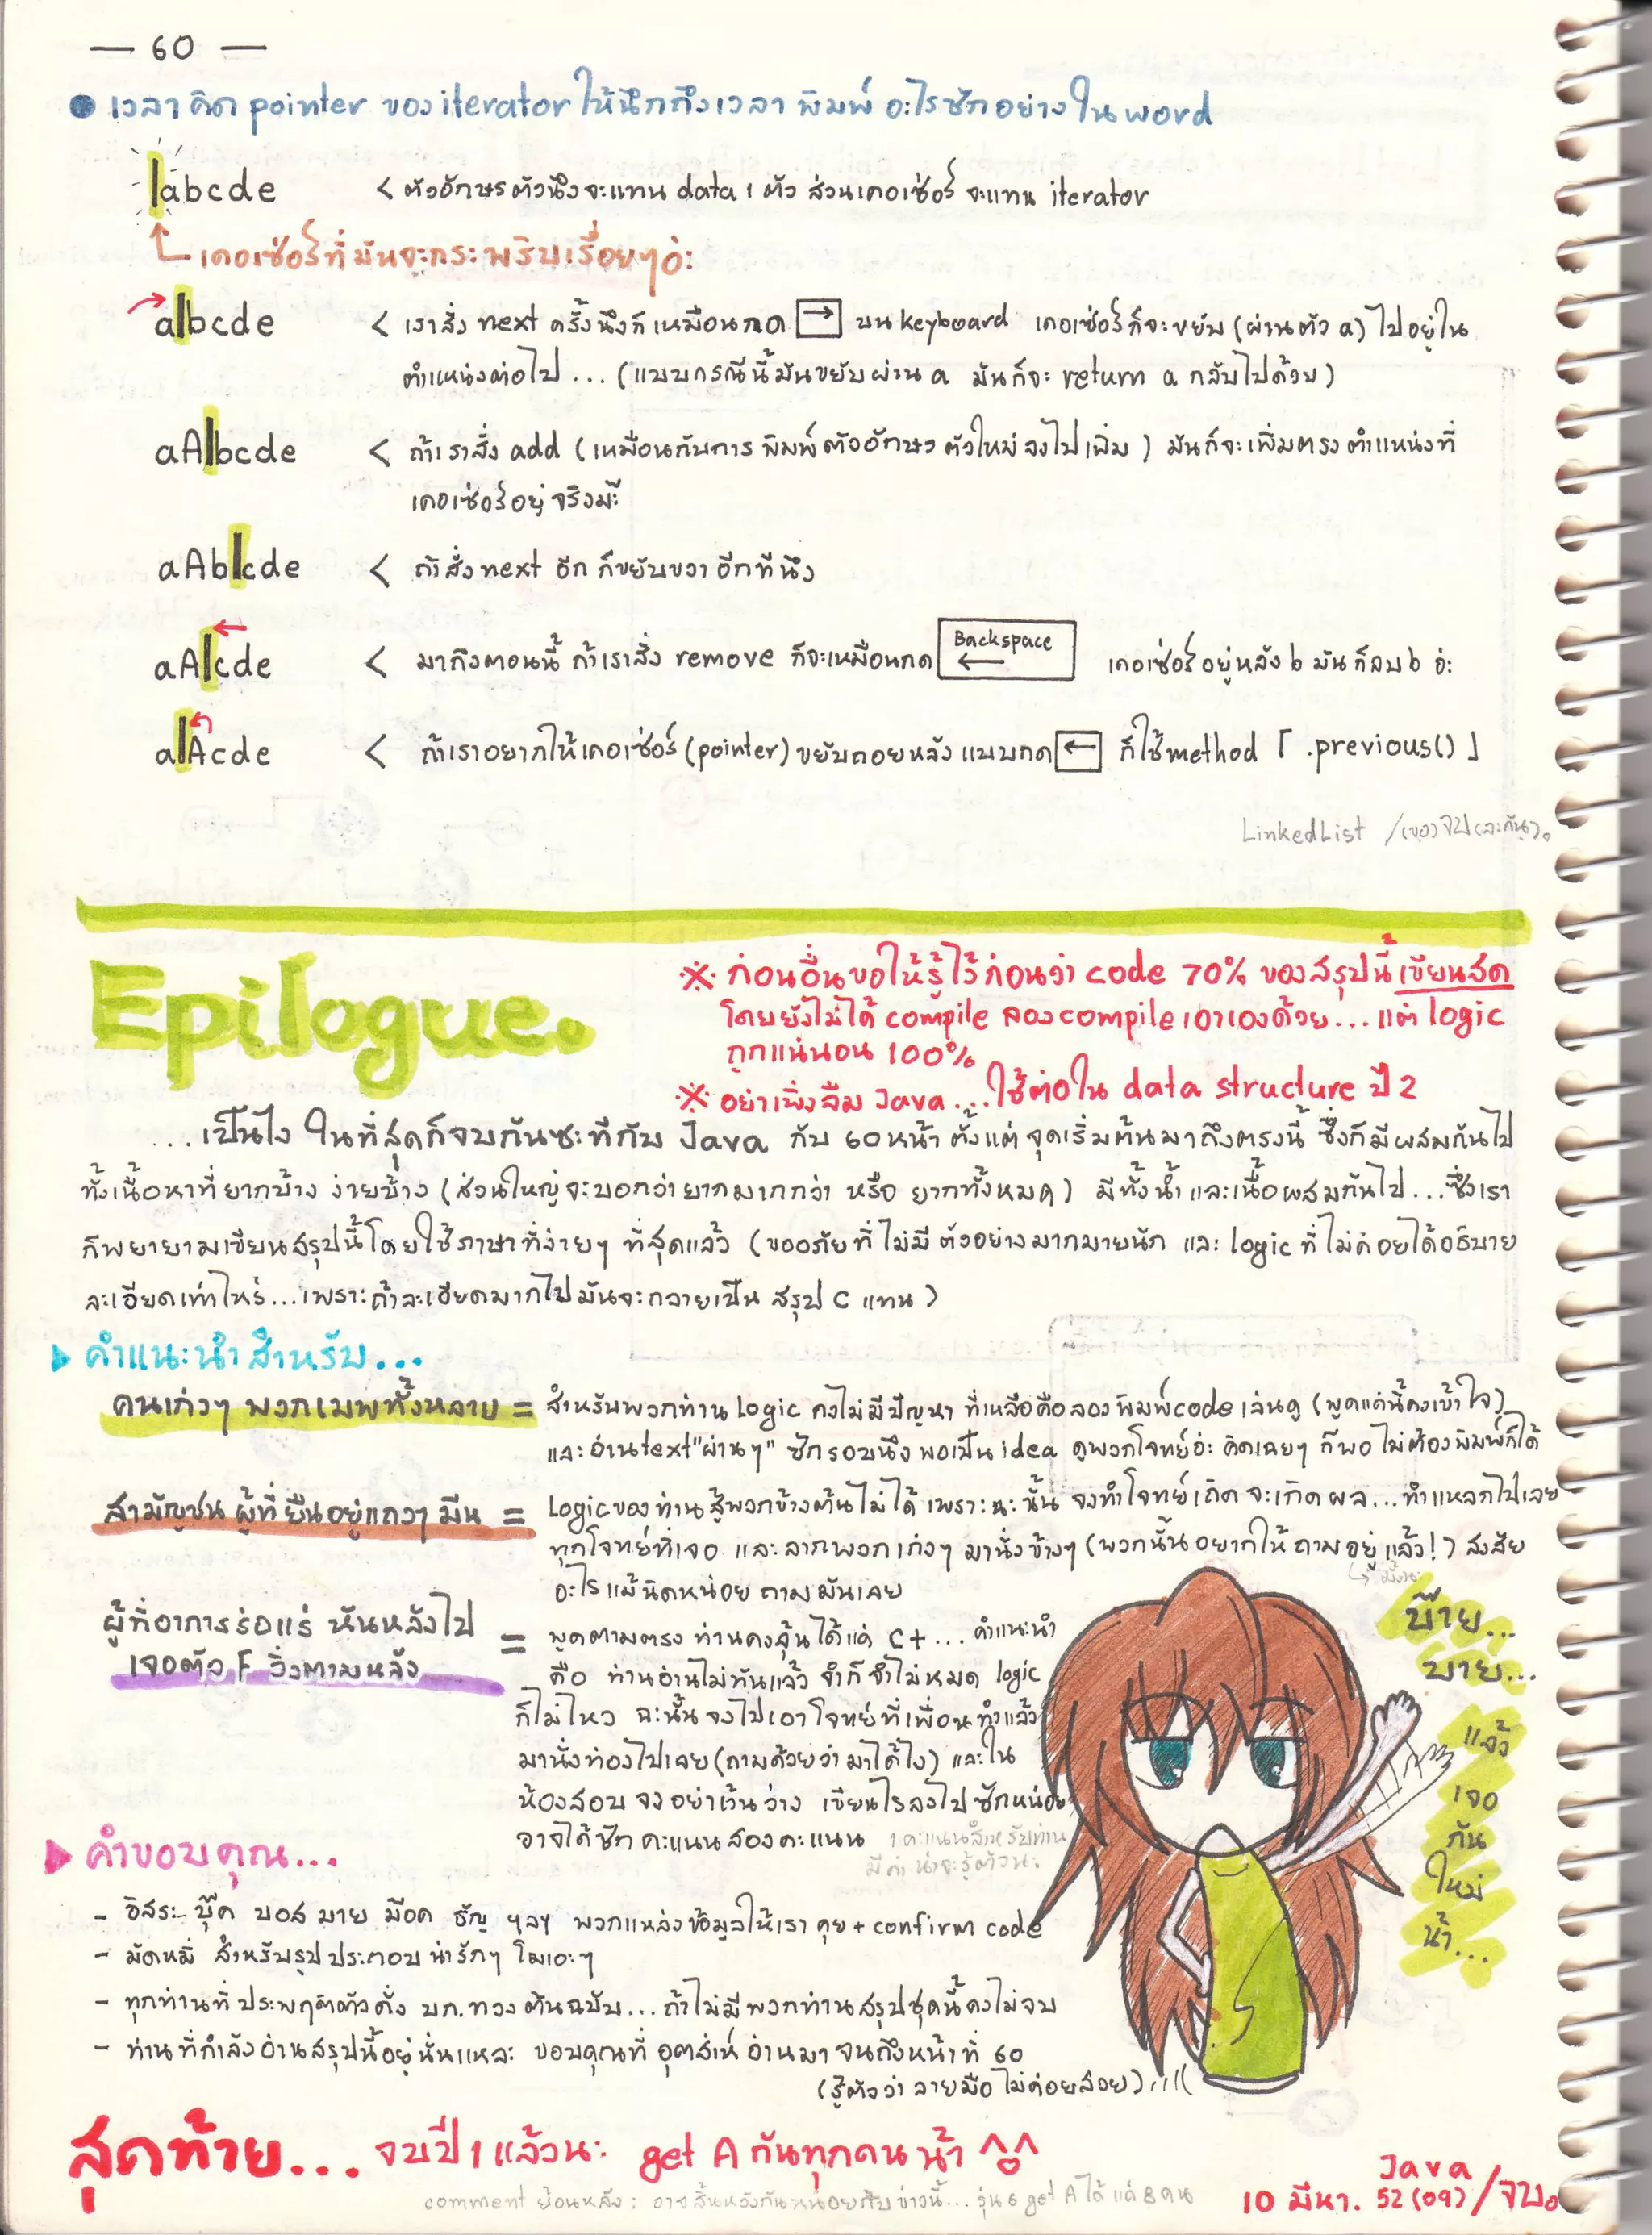 — 60 —
● เวลาคิด pointer ของ iterator ให้นึกถึงเวลา พิมพ์ อะไรซักอย่างใน word
|abcde < ตัวอักษรตัวนึงจะแทน data 1 ตัว ส่วนเคอเซ่อร์ จะแทน iterator
เคอเซ่อร์ที่มันจะกระพริบเรื่อยๆอ่ะ
a|bcde < เราสั่ง next ครั้งนึงก็เหมือนกด → บน keyboard เคอเซ่อร์ก็จะขยับ (ผ่านตัว a) ไปอยู่ใน
ตำแหน่งต่อไป ... (แบบกรณีนี้มันขยับผ่าน a มันก็จะ return a กลับไปด้วย)
aA|bcde < ถ้าเราสั่ง add (เหมือนกับการ พิมพ์ตัวอักษร ตัวใหม่ ลงไปเพิ่ม) มันก็จะเพิ่มตรงตำแหน่งที่
เคอเซ่อร์อยู่ จริงมะ
aAb|cde < ถ้าสั่ง next อีก ก็ขยับขวา อีกทีนึง
aA|cde < มาถึงตอนนี้ ถ้าเราสั่ง remove ก็จะเหมือนกด Backspace ← เคอเซ่อร์อยู่หลัง b มันก็ลบ b อ่ะ
a|Acde < ถ้าเราอยากให้เคอเซ่อร์ (pointer) ขยับถอยหลัง แบบกด ← ก็ใช้ method 「 .previous() 」
LinkedList
Epilogue.
※ ก่อนอื่นขอให้รู้ไว้ก่อนว่า code 70% ของสรุปนี้ เขียนสด
โดยยังไม่ได้ compile ลอง compile เอาเองด้วย... แต่ logic
ถูกแน่นอน 100%
※ อย่าเพิ่งลืม Java ... ใช้ต่อใน data structure ปี 2
...เป็นไง ในที่สุดก็จบกันซะทีกับ Java กับ 60 หน้า ตั้งแต่ จุดเริ่มต้นมาถึงตรงนี้ ซึ่งก็มีผสมกันไป
ทั้งเนื้อหาที่ยากบ้าง ง่ายบ้าง (ส่วนใหญ่จะบอกว่ายากมากกว่า หรือ ยากทั้งหมด) มีทั้งน้ำ และเนื้อผสมกันไป...ซึ่งเรา
ก็พยายามเขียนสรุปนี้โดยใช้ภาษาที่ง่ายๆ ที่สุดแล้ว (ขออภัยที่ไม่มี ตัวอย่างมากมายนัก และ logic ที่ไม่ค่อยได้อธิบาย
ละเอียดเท่าไหร่...เพราะถ้าละเอียดมากไปมันจะกลายเป็น สรุป C แทน)
▶ คำแนะนำสำหรับ...
คนเก่งๆ พวกเมพทั้งหลาย = สำหรับพวกท่าน Logic คงไม่มีปัญหา ที่เหลือคือลองพิมพ์ code เล่นดู (พูดแค่นี้คงเข้าใจ)
และอ่าน text "ผ่านๆ" ซักรอบนึง พอเป็น idea ดูพวกโจทย์อ่ะ คิดเฉยๆ ก็พอ ไม่ต้องพิมพ์ก็ได้
สามัญชน ผู้ที่ยืนอยู่แถวๆ มีน = Logic ของท่าน สู้พวกข้างต้นไม่ได้ เพราะฉะนั้น จงทำโจทย์เถิด จะเกิดผล...ทำแหลกไปเลย
ทุกโจทย์ที่เจอ และลากพวกเก่งๆ มานั่งข้างๆ (พวกนั้นอยากให้ถามอยู่แล้ว!) สงสัย
อะไรแม้นิดหน่อย ถามมันเลย
ผู้ที่อาการร่อแร่ หันหลังไป
เจอตัว F วิ่งตามหลัง
= พูดตามตรง ท่านคงลุ้นได้แค่ C+ ... คำแนะนำ
คือ ท่านอ่านไม่ทันแล้ว จำก็จำไม่หมด logic
ก็ไม่ไหว ฉะนั้น จงไปเอาโจทย์ที่เพื่อนทำแล้ว
มานั่งท่องไปเลย (ถามด้วยว่ามาได้ไง) และใน
ห้องสอบ จงอย่าเว้นว่าง เขียนไรลงไปซักหน่อย
อาจได้ซัก คะแนนสองคะแนน 1 คะแนนสำหรับท่าน
มีค่า น่าจะรู้ตัวนะ
บ๊าย...
บาย...
แล้ว
เจอ
กัน
ใหม่
น้า...
▶ คำขอบคุณ...
- อิสระ บุ๊ค บอส มาย ม๊อค ธัญ ฯลฯ พวกแหล่งข้อมูลให้เราคุย + confirm code
- มัดหมี่ สำหรับรูปประกอบน่ารักๆ โมเอะๆ
- ทุกท่านที่ประพฤติตัวดั่ง บก.ทวงต้นฉบับ... ถ้าไม่มีพวกท่านสรุปชุดนี้คงไม่จบ
- ท่านที่กำลังอ่านสรุปนี้อยู่นั่นแหละ ขอบคุณที่ อุตส่าห์ อ่านมา จนถึงหน้าที่ 60
(รู้ตัวว่า ลายมือไม่ค่อยสวย)
สุดท้าย... จบปี 1 แล้วนะ get A กันทุกคน น้า ^o^
comment ย้อนหลัง : อาจสิ้นหวังกันหน่อยกับข่าวนี้... รุ่น 6 get A ได้แค่ 8 คน
Java
10 มีนา. 52 (09) / จบ.